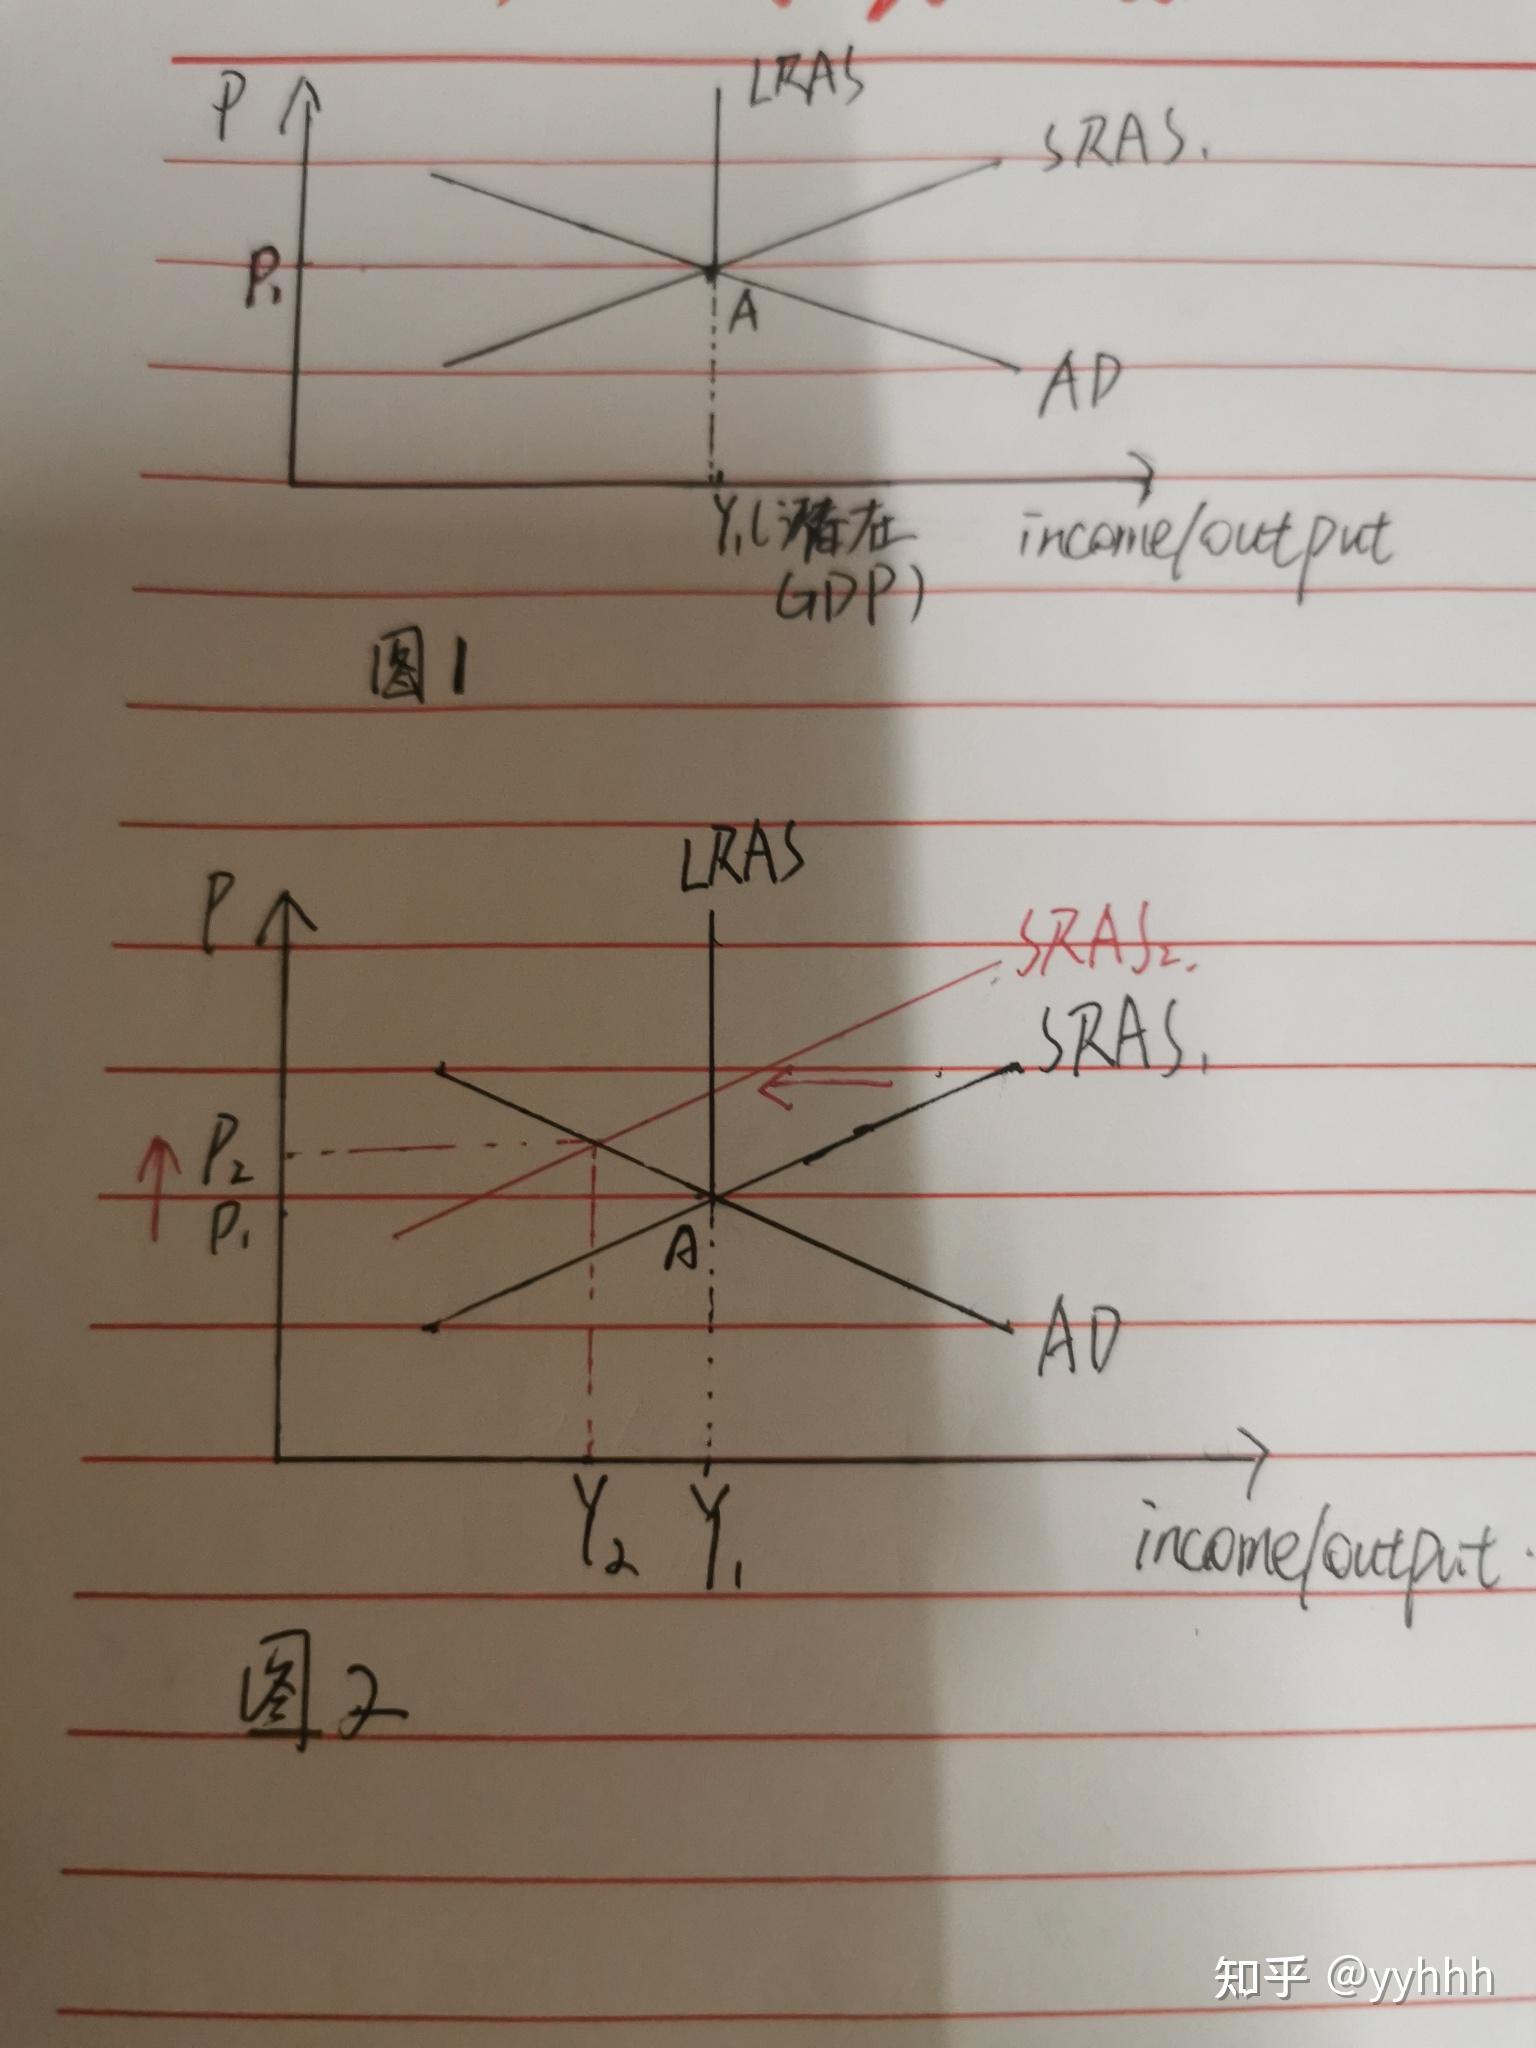 P
LRAS
SRAS₁
P₁
A
AD
Y₁(潜在
GDP)
income/output
图1
LRAS
P
SRAS₂.
SRAS₁
P₂
P₁
A
AD
Y₂
Y₁
income/output.
图2
知乎 @yyhhh